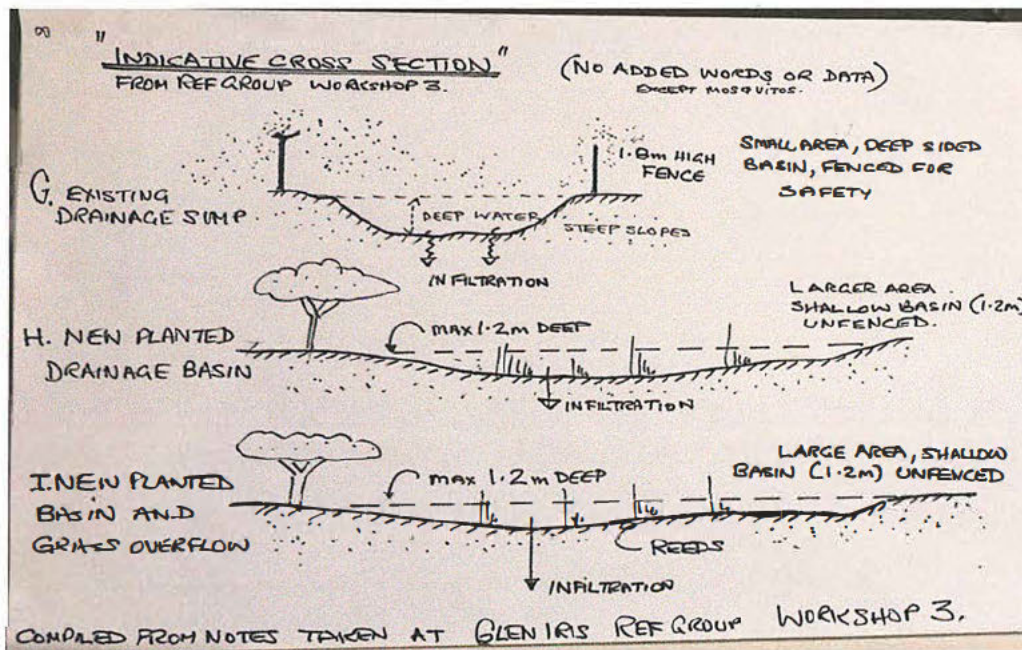 "INDICATIVE CROSS SECTION"
FROM REF GROUP WORKSHOP 3.
(NO ADDED WORDS OR DATA)
EXCEPT MOSQUITOS.
G. EXISTING
DRAINAGE SUMP.
1.8m HIGH
FENCE
SMALL AREA, DEEP SIDED
BASIN, FENCED FOR
SAFETY
DEEP WATER
STEEP SLOPES
INFILTRATION
H. NEW PLANTED
DRAINAGE BASIN
MAX 1.2m DEEP
LARGER AREA.
SHALLOW BASIN (1.2m)
UNFENCED.
INFILTRATION
I. NEW PLANTED
BASIN AND
GRASS OVERFLOW
MAX 1.2m DEEP
LARGE AREA, SHALLOW
BASIN (1.2m) UNFENCED
REEDS
INFILTRATION
COMPILED FROM NOTES TAKEN AT GLEN IRIS REF GROUP WORKSHOP 3.